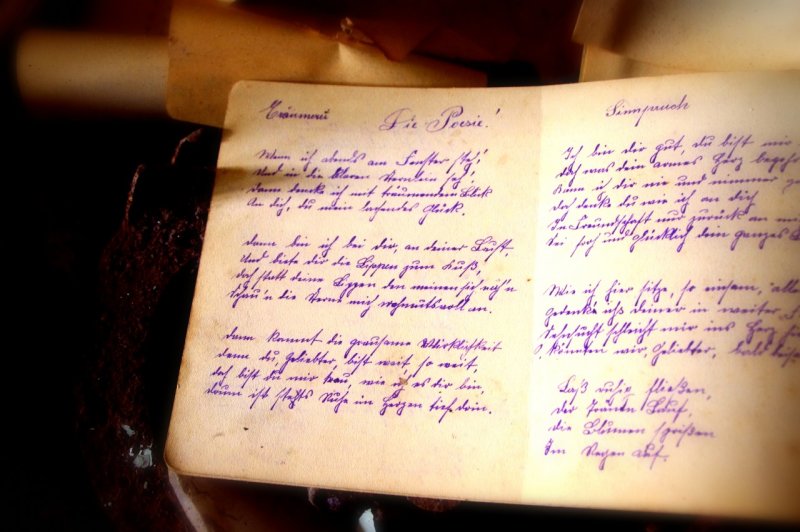 Träumerei Die Poesie!
Wenn ich abends am Fenster steh'
Und in die klaren Sternlein seh',
Dann denke ich mit träumendem Blick
An dich, du mein lachendes Glück.
Dann bin ich bei dir, an deiner Seite,
Und biete dir die Lippen zum Kuß,
Doch statt deine Lippen den meinen sich näh'n
Schau'n die Sterne mich wehmutsvoll an.
Dann kommt die grausame Wirklichkeit
denn du, Geliebter, bist weit, so weit,
doch bist du mir treu, wie ich es dir bin,
dann ist stehts Ruhe im Herzen tief drin.
Sinnspruch
Ich bin dir gut, du bist mir
Doch was dein armes Herz begehr
Kann ich dir nie und nimmer
doch denke du wie ich an dich
In Freundschaft nur zurück an
Sei froh und glücklich dein ganzes
Wie ich hier sitze, so einsam,
gedenke ich deiner in weiter
Sehnsucht schleicht mir ins Herz
O, könnten wir, Geliebter, bald
Laß ruhig fließen,
der Tränen Lauf,
die Blumen sprießen
Im Regen auf.